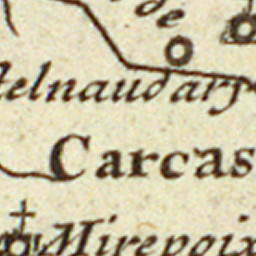 de
elnaudary
Carcas
Mirepoix